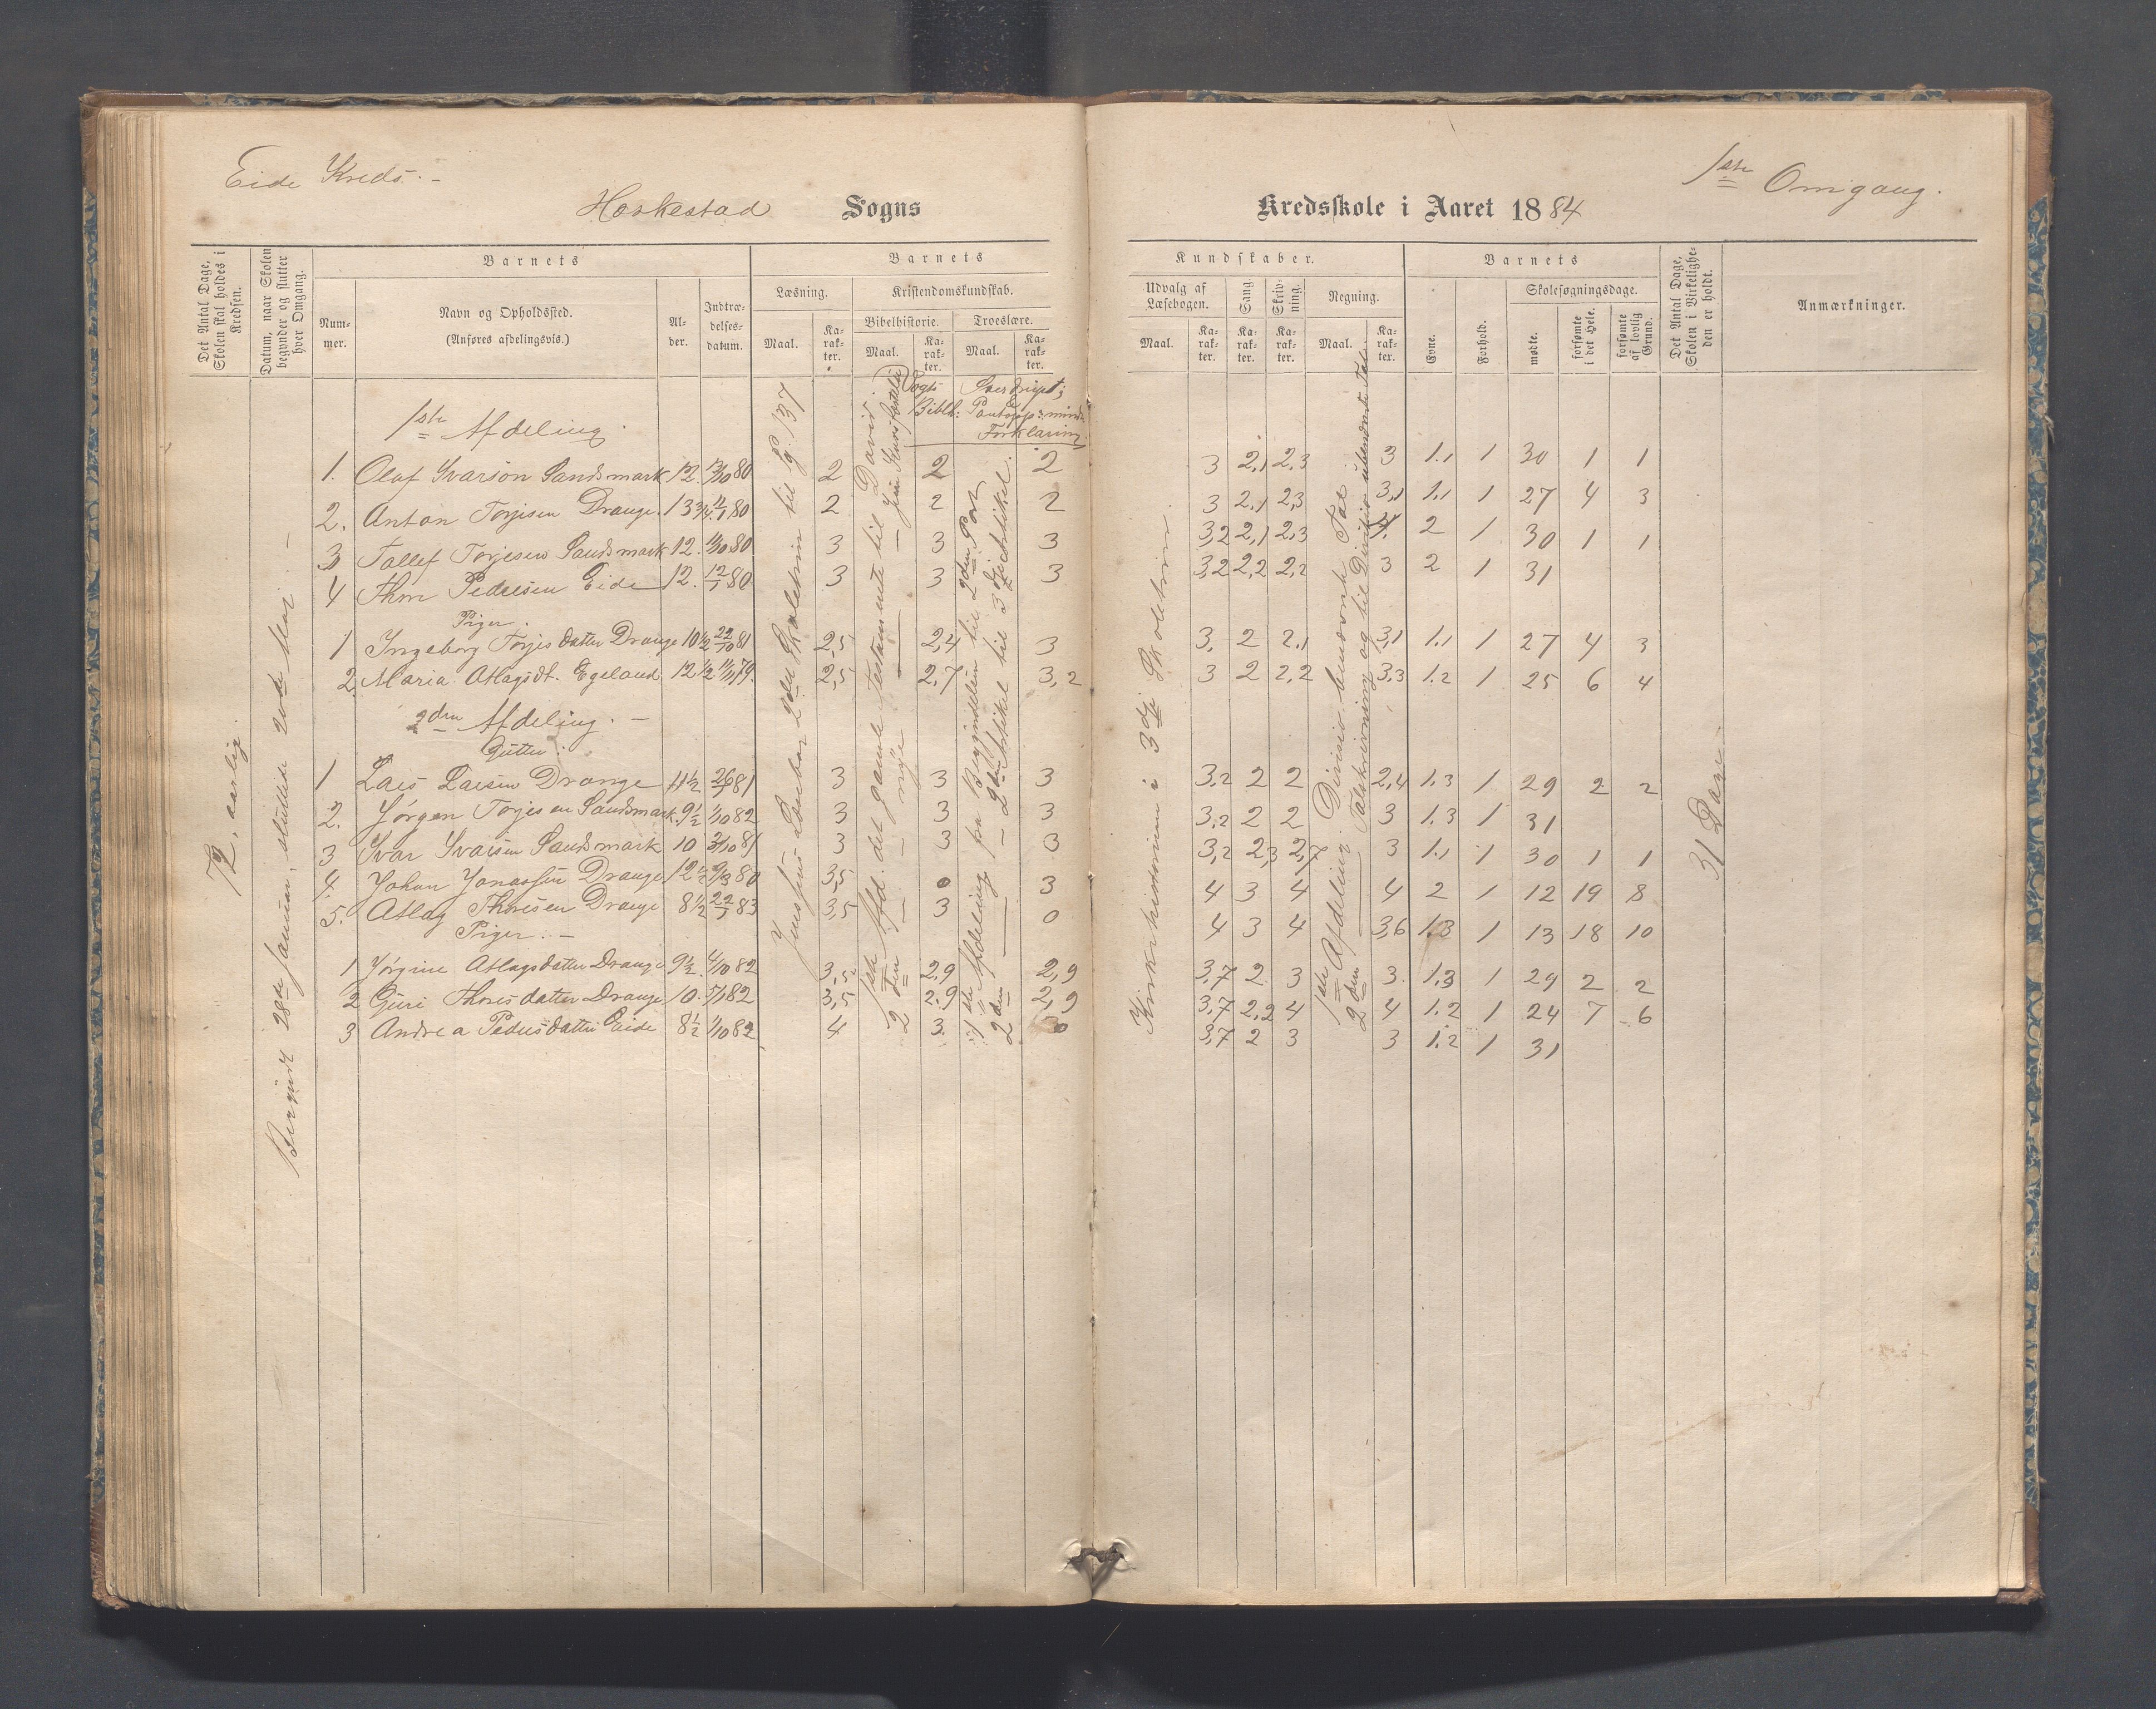 Eide Kreds. –
Heskestad Sogns
Kredsskole i Aaret 1884
1ste Omgang.
Det Antal Dage, Skolen skal holdes i Kredsen.
Datum, naar Skolen begynder og slutter hver Omgang.
Barnets
Nummer.
Navn og Opholdssted.
(Anføres afdelingsvis.)
Alder.
Indtrædelsesdatum.
Barnets
Læsning.
Maal.
Karakter.
Kristendomskundskab.
Bibelhistorie.
Maal.
Karakter.
Troeslære.
Maal.
Karakter.
Kundskaber.
Udvalg af Læsebogen.
Maal.
Karakter.
Sang
Karakter.
Skrivning.
Karakter.
Regning.
Maal.
Karakter.
Barnets
Evne.
Forhold.
Skolesøgningsdage.
mødte.
forsømte i det Hele.
forsømte af lovlig Grund.
Det Antal Dage, Skolen i Virkeligheden er holdt.
Anmærkninger.
72, aarlig.
Begyndt 28de Januar, sluttede 20de Mai –
Jensens Læsebog 2det Skoletrin til Pg. 137
Vogts Bibelh:
Sverdrups Pontopp: mindre Forklaring
1ste Afd. det gamle Testamente til David.
2den — — nye — —
1ste Afdeling fra Begyndelsen til 2den Part
2den — — 2den Artikel til 3die Artikel.
Kirkehistorien i 3die Skoletrin.
1ste Afdeling. Division benævnte Tal
2den — Talskrivning og til Division ubenævnte Tal.
31 Dage
1ste Afdeling.
1. Olaf Ivarson Sandsmark 12. 13/10 80 2 2 2 3 2,1 2,3 3 1.1 1 30 1 1
2. Anton Torjesen Drange. 13 3/4. 12/1 80 2 2 2 3 2,1 2,3 3,1 1.1 1 27 4 3
3 Tollef Torjesen Sandsmark 12. 13/10 80 3 3 3 3,2 2,1 2,3 4. 2 1 30 1 1
4 Thore Pedersen Eide 12. 12/1 80 3 3 3 3,2 2,2 2,2 3 2 1 31
Piger.
1 Ingeborg Torjesdatter Drange 10 1/2 22/10 81 2,5 2,4 3 3. 2 2,1 3,1 1.1 1 27 4 3
2. Maria Atlagsdt. Egeland 12 1/2 11/11 79. 2,5 2,7 3,2 3 2 2,2 3,3 1.2 1 25 6 4
2den Afdeling. –
Gutter.
1 Lars Larsen Drange 11 1/2 26/7 81 3 3 3 3,2 2 2 2,4 1.3 1 29 2 2
2. Jørgen Torjesen Sandsmark. 9 1/2 1/10 82 3 3 3 3,2 2 2 3 1.3 1 31
3 Ivar Ivarsen Sandsmark 10 3/10 81 3 3 3 3,2 2,3 2,7 3 1.1 1 30 1 1
4. Johan Jonassen Drange 12 1/2 9/3 80 3,5 0 3 4 3 4 4 2 1 12 19 8
5. Atlag Thoresen Drange 8 1/2 22/1 83 3,5 3 0 4 3 4 3,6 1.3 1 13 18 10
Piger. –
1 Jørgine Atlagsdatter Drange 9 1/2. 4/10 82 3,5 2,9 2,9 3,7 2 3 3. 1.3 1 29 2 2
2 Guri Thoresdatter Drange 10. 5/1 82 3,5 2,9 2,9 3,7 2,2 4 4 1.2 1 24 7 6
3 Andrea Pedersdatter Eide 8 1/2 1/10 82 4 3 0 3,7 2 3 3 1.2 1 31